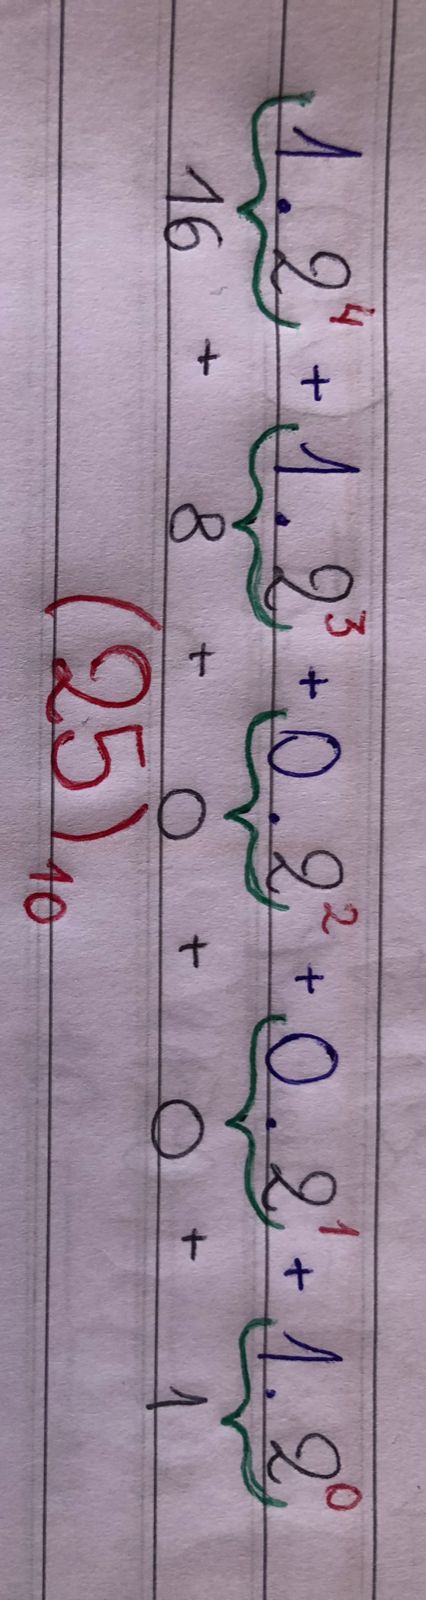 1 . 2⁴ + 1 . 2³ + 0 . 2² + 0 . 2¹ + 1 . 2⁰
16 + 8 + 0 + 0 + 1
(25)₁₀